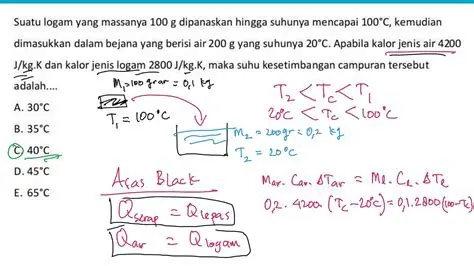 Suatu logam yang massanya 100 g dipanaskan hingga suhunya mencapai 100°C, kemudian
dimasukkan dalam bejana yang berisi air 200 g yang suhunya 20°C. Apabila kalor jenis air 4200
J/kg.K dan kalor jenis logam 2800 J/kg.K, maka suhu kesetimbangan campuran tersebut
adalah....
A. 30°C
B. 35°C
C. 40°C
D. 45°C
E. 65°C
M₁=100 gram = 0,1 kg
T₁ = 100°C
M₂ = 200gr = 0,2 kg
T₂ = 20°C
T₂ < Tc < T₁
20°C < Tc < 100°C
Asas Black
Qserap = Qlepas
Qair = Qlogam
Mair. Cair. ΔTair = Ml. Cl. ΔTl
0,2. 4200. (Tc-20°C) = 0,1.2800(100-Tc)